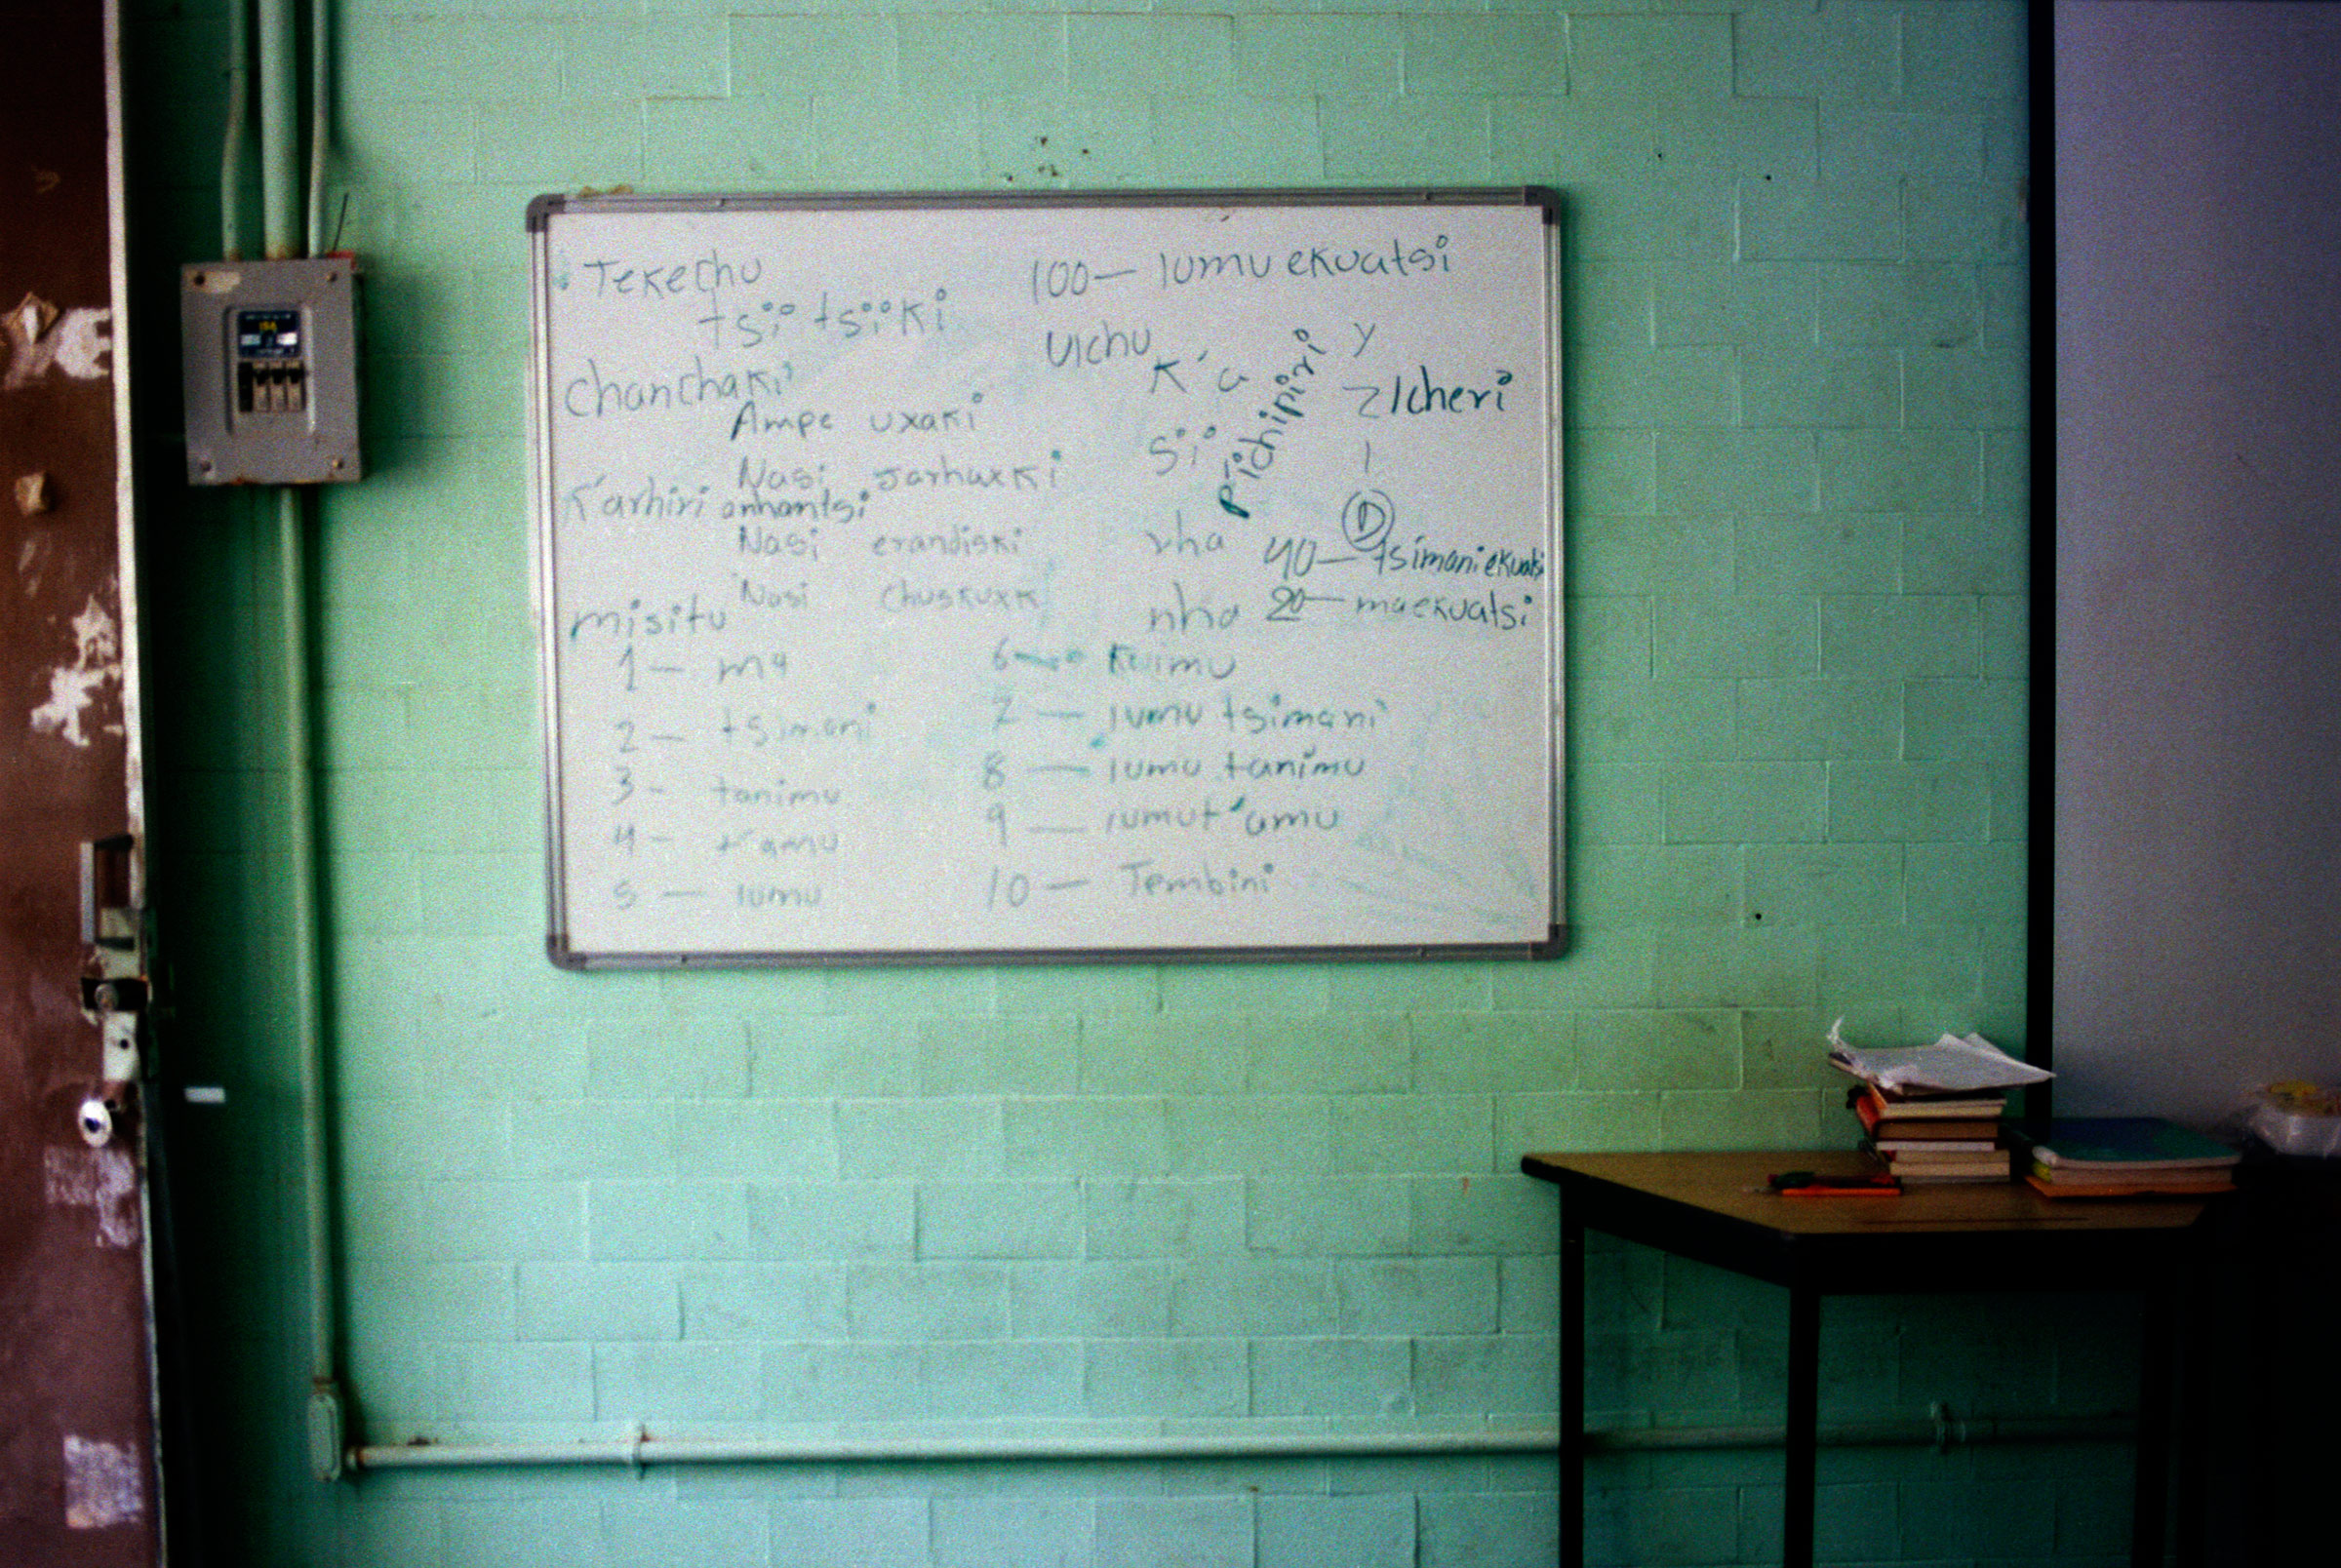 Tekechu
tsii tsiiki
chanchaki
Ampe uxaki
Nasi jarhaxki
K'arhiri anhantsi
Nasi erandiski
Nasi chuskuxk
misitu
1 — ma
2 — tsimani
3 - tanimu
4 - t'amu
5 — iumu
100 — iumu ekuatsi
uichu
k'a
sii
rha
nha
p'ichipiri
y
z
i
D
Icheri
40 — tsimani ekuatsi
20 — maekuatsi
6 — kuimu
7 — iumu tsimani
8 — iumu tanimu
9 — iumu t'amu
10 — Tembini